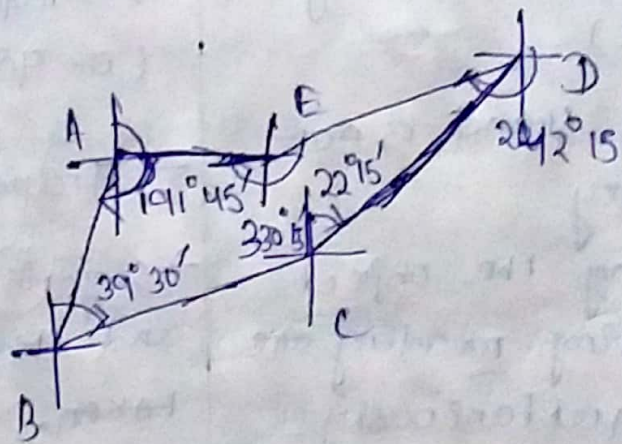 E
D
A
242° 15
191° 45'
22° 15'
330° 15'
39° 30'
C
B